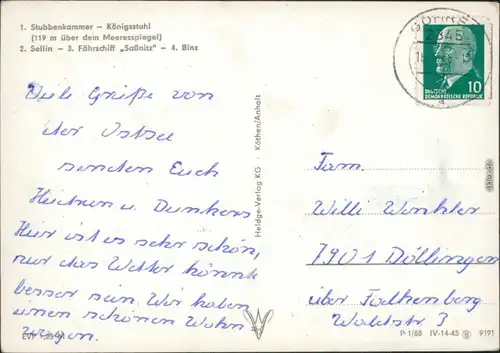 1. Stubbenkammer – Königsstuhl
(119 m über dem Meeresspiegel)
2. Sellin – 3. Fährschiff „Saßnitz" – 4. Binz
GÖHREN
2345
10
DEUTSCHE
DEMOKRATISCHE REPUBLIK
Viele Grüße von
der Ostsee
senden Euch
u. Dunkers
Hier ist es sehr schön,
nur das Wetter könnte
besser sein. Wir haben
einen schönen Wohn-
wagen.
Heldge-Verlag KG · Köthen/Anhalt
Fam.
Willi Winkler
7901 Döllingen
über Falkenberg
Waldstr. 3
P 1/68 IV-14-45 9191